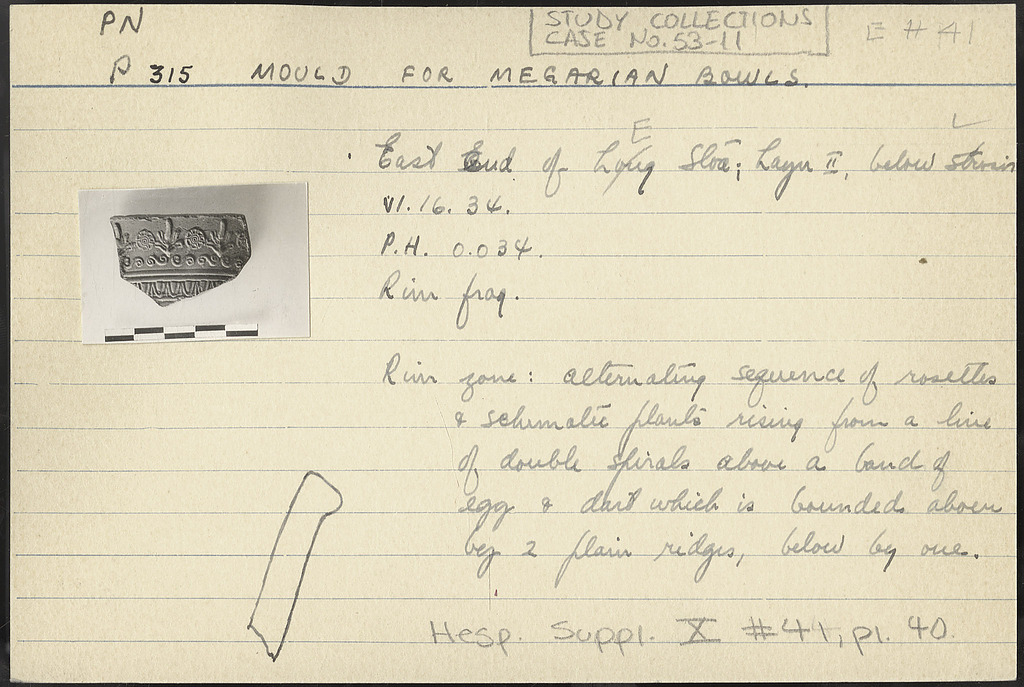 PN
STUDY COLLECTIONS
CASE NO. 53-11
E # 41
P 315 MOULD FOR MEGARIAN BOWLS.
E
East End of Long Stoa; Layer II, below strosis
VI. 16. 34.
P.H. 0.034.
Rim frag.
Rim zone: alternating sequence of rosettes
& schematic plants rising from a line
of double spirals above a band of
egg & dart which is bounded above
by 2 plain ridges, below by one.
Hesp. Suppl. X #41, pl. 40.